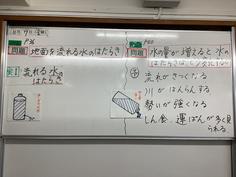 P36
問題
地面を流れる水のはたらき
実1
流れる水の
はたらき
問題
水の量が増えると水の
はたらきは、どう
予
流れがきつくなる
川がはんらんする
勢いが強くなる
しん食、運ぱんが多く見
られる。